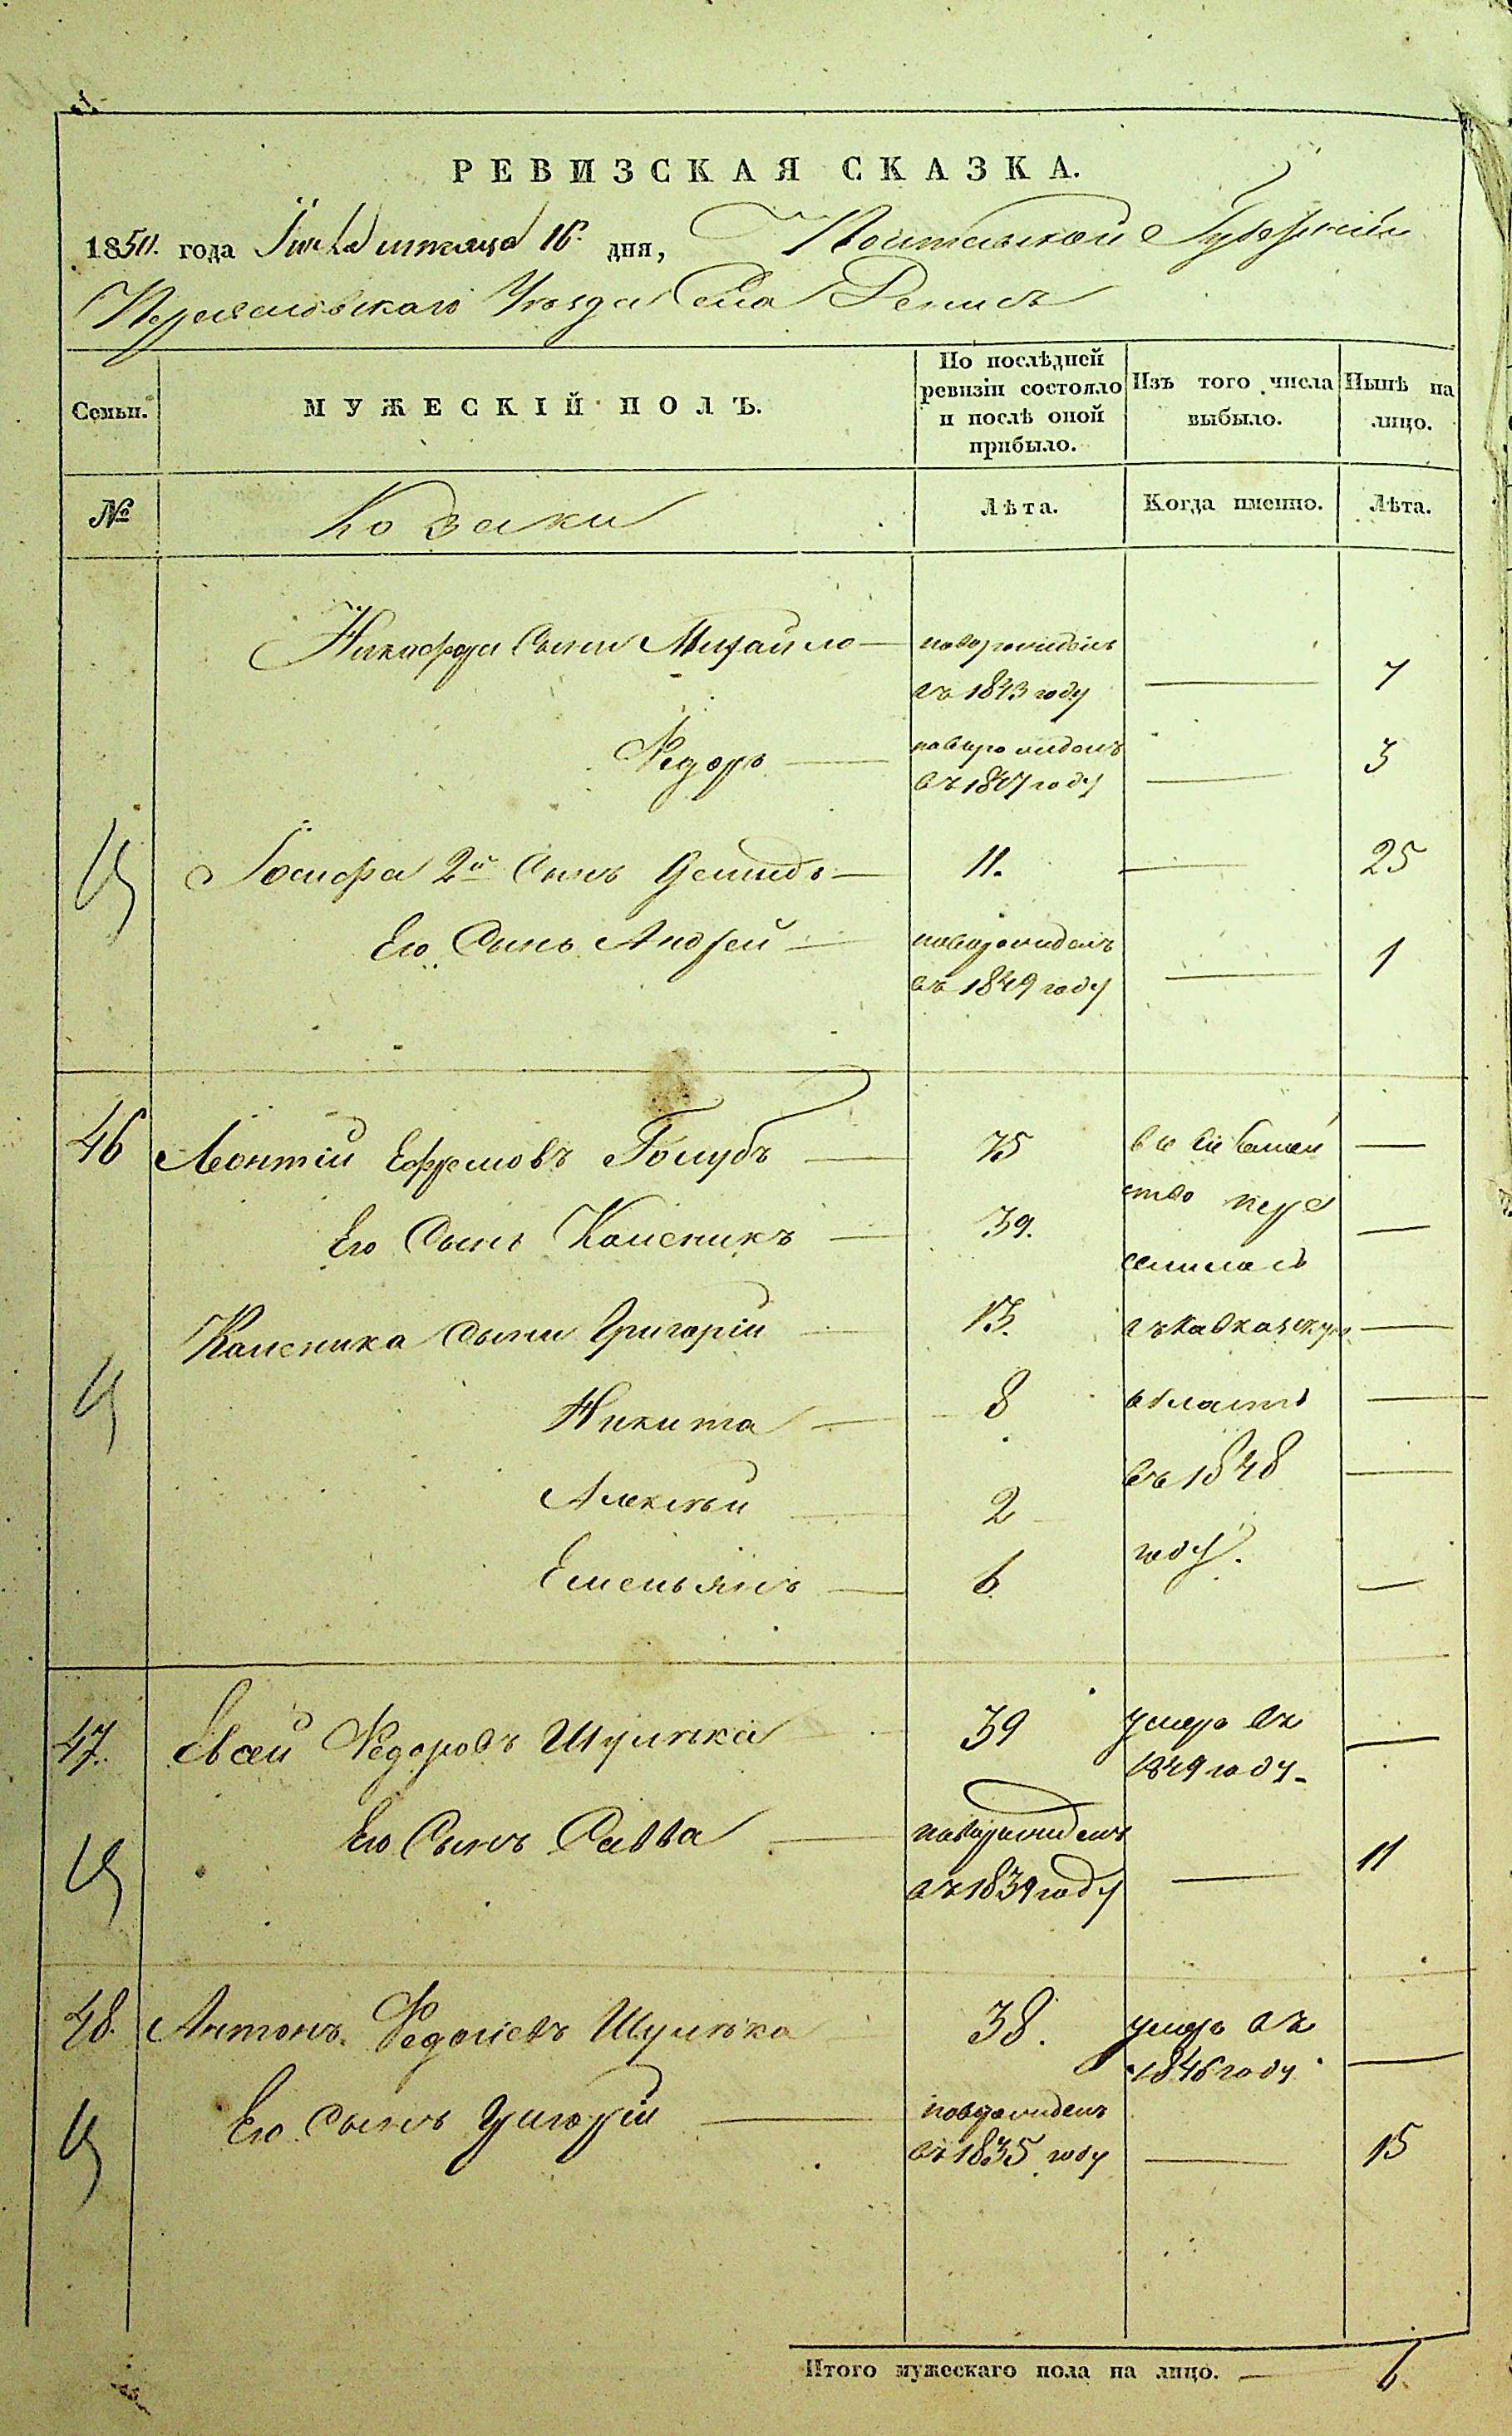 РЕВИЗСКАЯ СКАЗКА.
1850. года Іюля месяца 16. дня, Полтавской Губерніи
Переяславского Уезда Села
Семьи.
МУЖЕСКІЙ ПОЛЪ.
По послѣдней ревизіи состояло и послѣ оной прибыло.
Изъ того числа выбыло.
Нынѣ на лицо.
№
Козаки
Лѣта.
Когда именно.
Лѣта.
Никифора Сыни Михайло — новорожденъ
въ 1843 году — 7
Федоръ — новорожденъ
въ 1847 году — 3
Іосифа 2й Сынъ Демидъ — 11. — 25
Его Сынъ Андрей — новорожденъ
въ 1849 году — 1
46 Леонтій Ефремовъ Голубъ — 75 —
Его Сынъ Каленикъ — 39. —
Каленика Сыни Григорій — 13. —
Никита — 8 —
Алексѣй — 2 —
Емельянъ — 6 —
семейство пере
селилось
въ Кавказскую
область
въ 1848
году.
47. Евсей Федоровъ Шулѣка 39 умеръ въ
1849 году —
Его Сынъ Савва — новорожденъ
въ 1839 году — 11
48. Антонъ Федоровъ Шулѣка 38. умеръ въ
1846 году —
Его Сынъ Григорій — новорожденъ
въ 1835 году — 15
Итого мужескаго пола на лицо. — 6